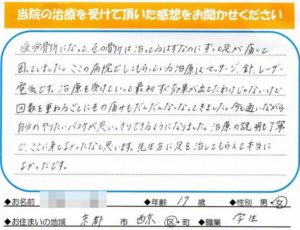 当院の治療を受けて頂いた感想をお聞かせください
疲労骨折になって、その骨折は治ってるはずなのにずっと足が痛くて
困っていました。ここの病院でしてもらっている治療はマッサージ、針、レーザー
電気です。治療を受けていて最初すぐ効果が出たわけじゃないけど
回数を重ねるごとにその痛みもだんだんなくなってきました。今も通いながら
自分のやりたいバスケが思いっきりできるようになりました。治療の説明も丁寧
で、ここに来てよかったなと思います。先生方に足を治してもらえて本当に
よかったです。
◆お名前 ◆年齢 17 歳 ◆性別 男・女
◆お住まいの地域 京都 市 西京 区・町 ◆職業 学生